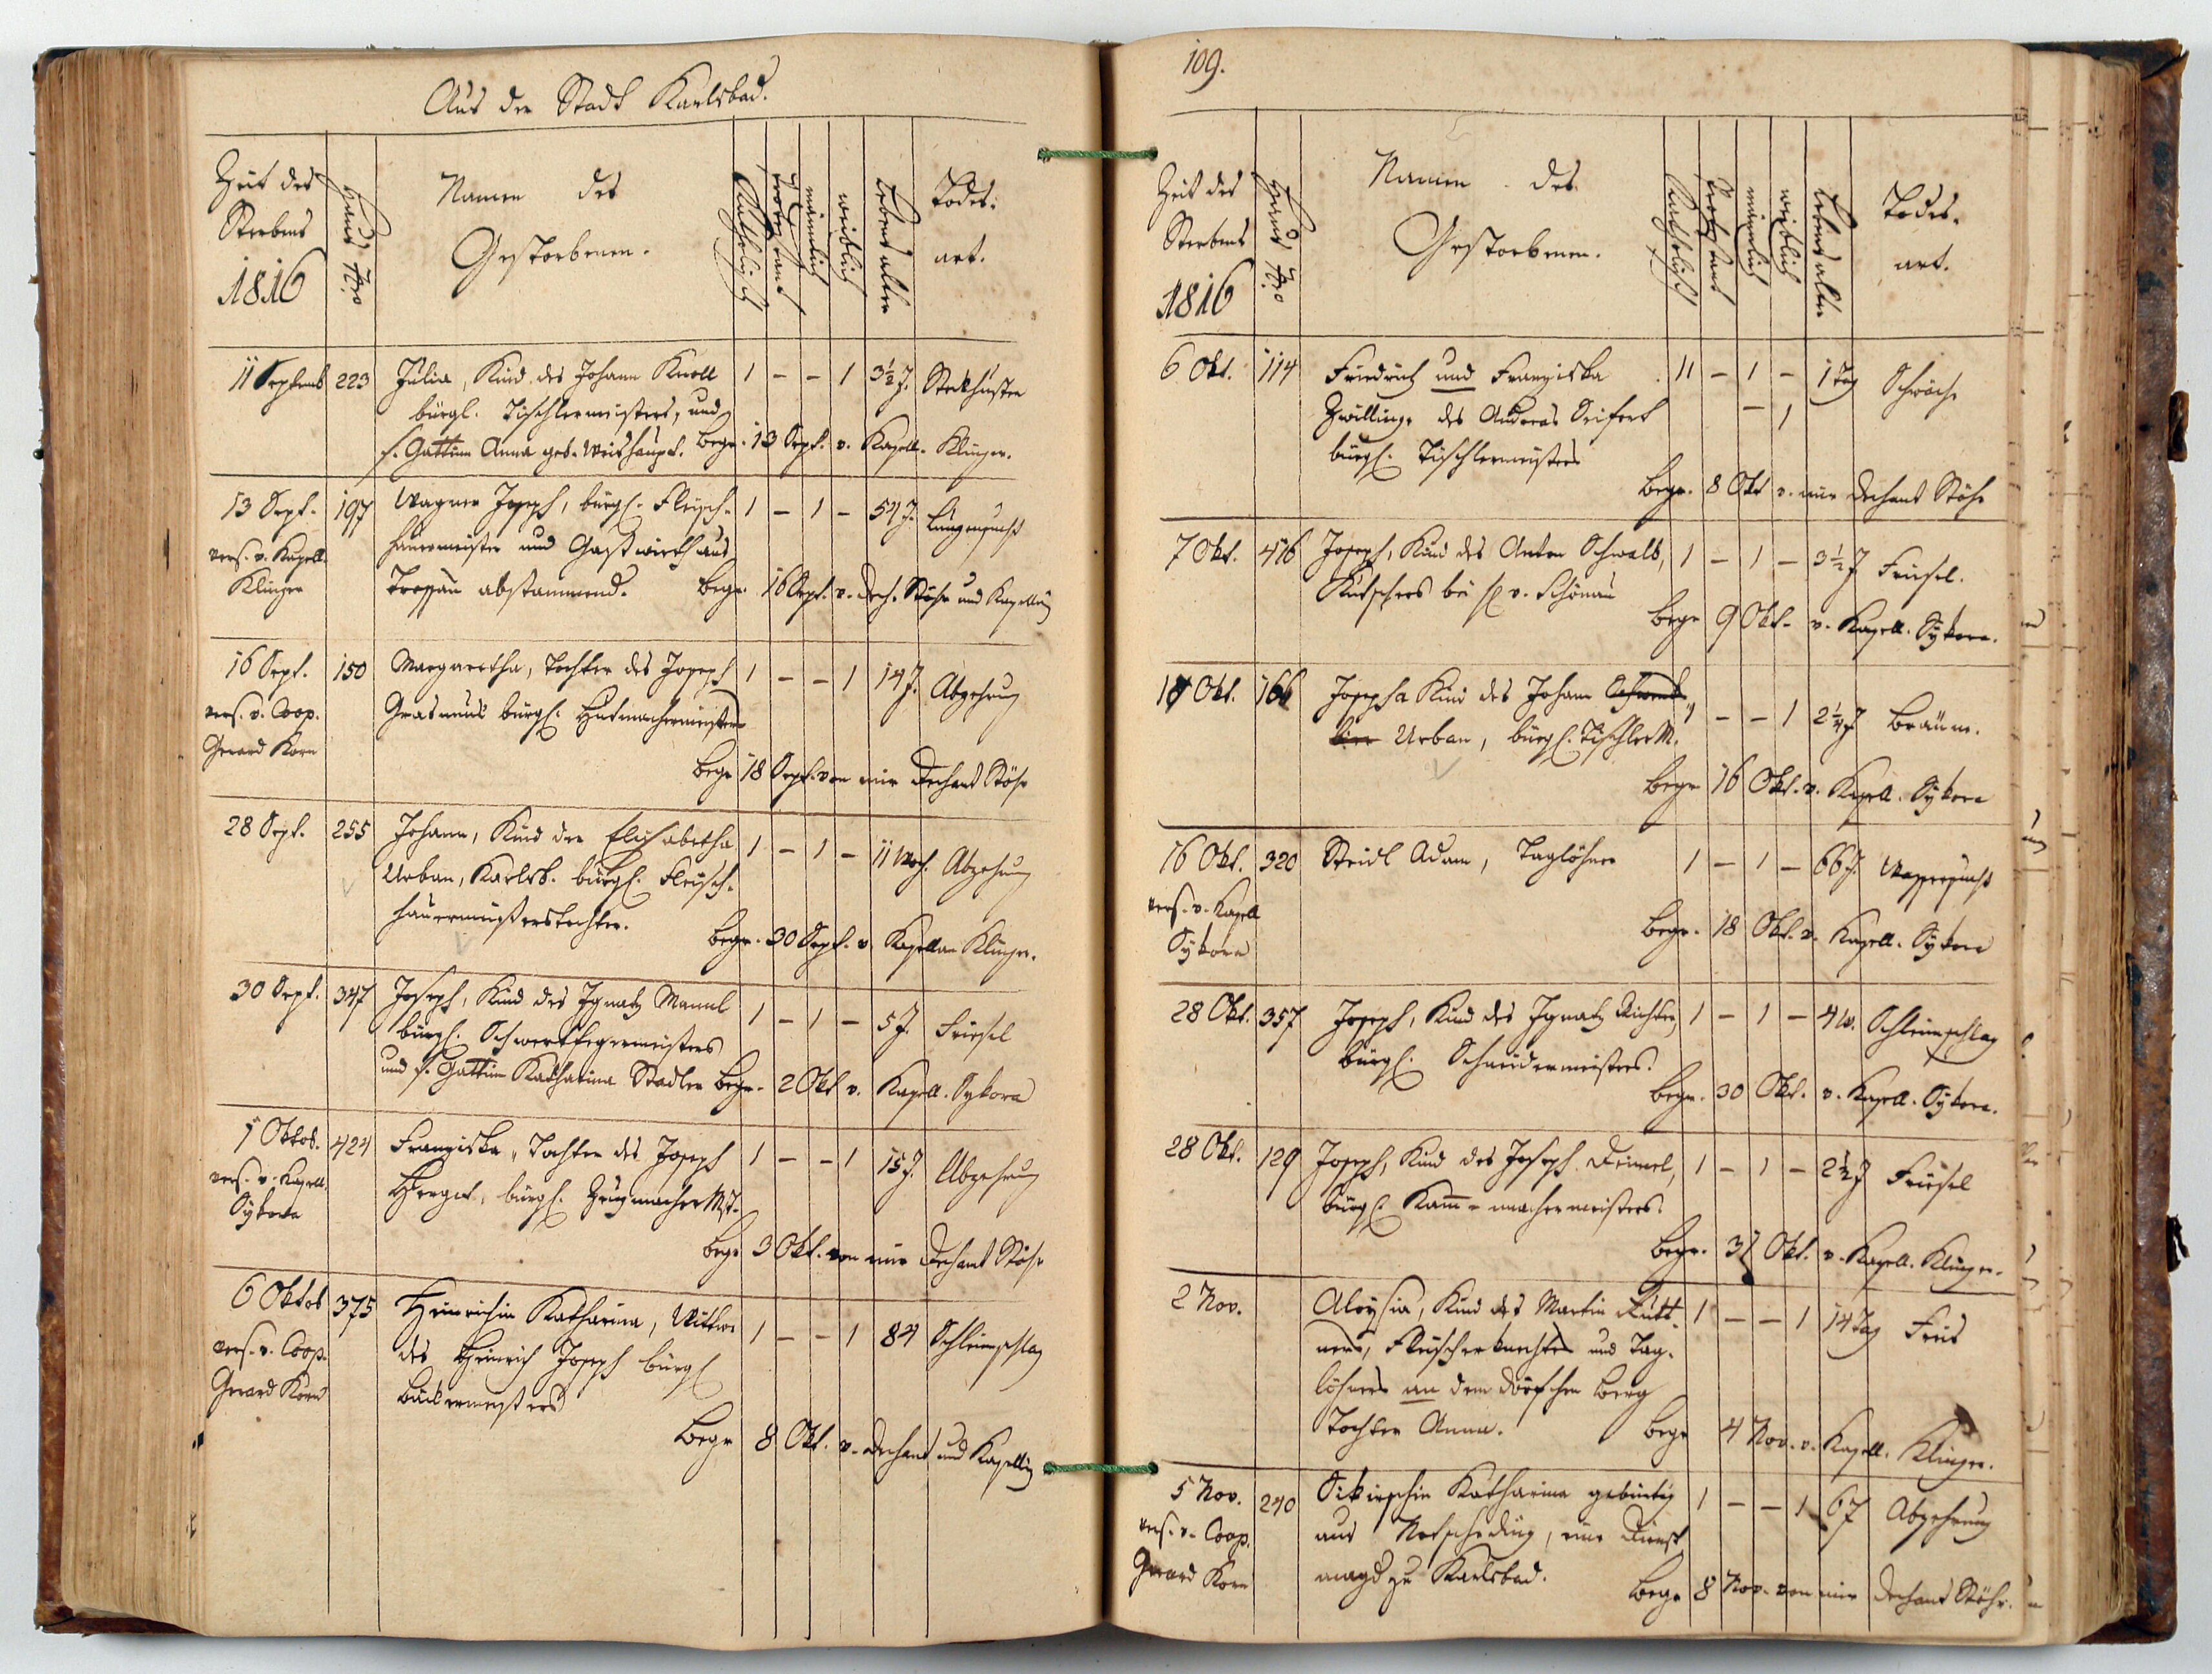 Aus der Stadt Karlsbad.
Zeit des
Sterbens
1816
Haus Nro
Namen des
Gestorbenen.
Katholisch
Protestant
männlich
weiblich
Lebensalter
Todes-
art.
11 Septemb 223 Julia, Kind des Johann Knoll 1 – – 1 3½ J. Steckhusten
bürgl. Tischlermeisters, und
s. Gattinn Anna geb. Weishaupt. Begr. 13 Sept. v. Kapell. Klinger.
13 Sept. 197 Wagner Joseph, bürgl. Fleisch- 1 – 1 – 54 J. Lungensucht
vers. v. Kapell. hauermeister und Gastwirth aus
Klinger Troppau abstammend. Begr. 16 Sept. v. Dech. Stöhr und Kapelln
16 Sept. 150 Margaretha, Tochter des Joseph 1 – – 1 14 J. Abzehrung
vers. v. Coop. Grasmuk bürgl. Hutmachermeisters
Gerard Korn
Begr 18 Sept. von mir Dechant Stöhr
28 Sept. 255 Johann, Kind der Elisabetha 1 – 1 – 11 Woch. Abzehrung
Urban, Karlsb. bürgl. Fleisch-
hauermeisterstochter. Begr. 30 Sept. v. Kapellan Klinger.
30 Sept. 347 Joseph, Kind des Ignatz Mannl 1 – 1 – 5 J. Friesel
bürgl. Schwertfegermeisters
und s. Gattinn Katharina Stadler Begr. 2 Okt v. Kapell. Sykora
1 Oktob. 424 Franziska, Tochter des Joseph 1 – – 1 15 J. Abzehrung
vers. v. Kapell. Herget, bürgl. Zeugmacher Mst.
Sykora
Begr 3 Okt. von mir Dechant Stöhr
6 Oktob 375 Heinrichin Katharina, Wittwe 1 – – 1 84 Schleimschlag
vers. v. Coop. des Heinrich Joseph bürgl
Gerard Korn Bäckermeisters
Begr 8 Okt. v. Dechant und Kapelln
109.
Zeit des
Sterbens
1816
Haus Nro
Namen des
Gestorbenen.
Katholisch
Protestant
männlich
weiblich
Lebensalter
Todes-
art.
6 Okt. 114 Friedrich und Franziska 11 – 1 – 1 Tag Schwäche
Zwillinge des Andreas Seifert – 1
bürgl. Tischlermeisters
Begr. 8 Okt v. mir Dechant Stöhr
7 Okt. 416 Joseph, Kind des Anton Schwalb, 1 – 1 – 3½ J Friesel.
Kutschers bei H v. Schönau
Begr 9 Okt. v. Kapell. Sykora.
Okt. 166 Josepha Kind des Johann
Urban, bürgl. Tischler M. 1 – – 1 2¼ J Bräune.
Begr 16 Okt. v. Kapell. Sykora
16 Okt. 320 Steidl Adam, Taglöhner 1 – 1 – 66 J. Wassersucht
vers. v. Kapell
Sykora
Begr. 18 Okt. v. Kapell. Sykora
28 Okt. 357 Joseph, Kind des Ignatz Richter, 1 – 1 – 4 W. Schleimschlag
bürgl. Schneidermeisters.
Begr. 30 Okt. v. Kapell. Sykora.
28 Okt. 129 Joseph, Kind des Joseph Deimel, 1 – 1 – 2½ J Friesel
bürgl. Kam̅-machermeisters.
Begr. 31 Okt. v. Kapell. Klinger.
2 Nov. Aloysia, Kind des Martin Rütt- 1 – – 1 14 Tag Freis
ners, Fleischerknechtes und Tag-
löhners an dem Dörfchen Berg
Tochter Anna. Begr 4 Nov. v. Kapell. Klinger.
5 Nov. 240 Katharina gebürtig 1 – – 1 67 Abzehrung
vers. v. Coop. aus eine Dienst
Gerard Korn magd zu Karlsbad.
Begr 8 Nov. von mir Dechant Stöhr.